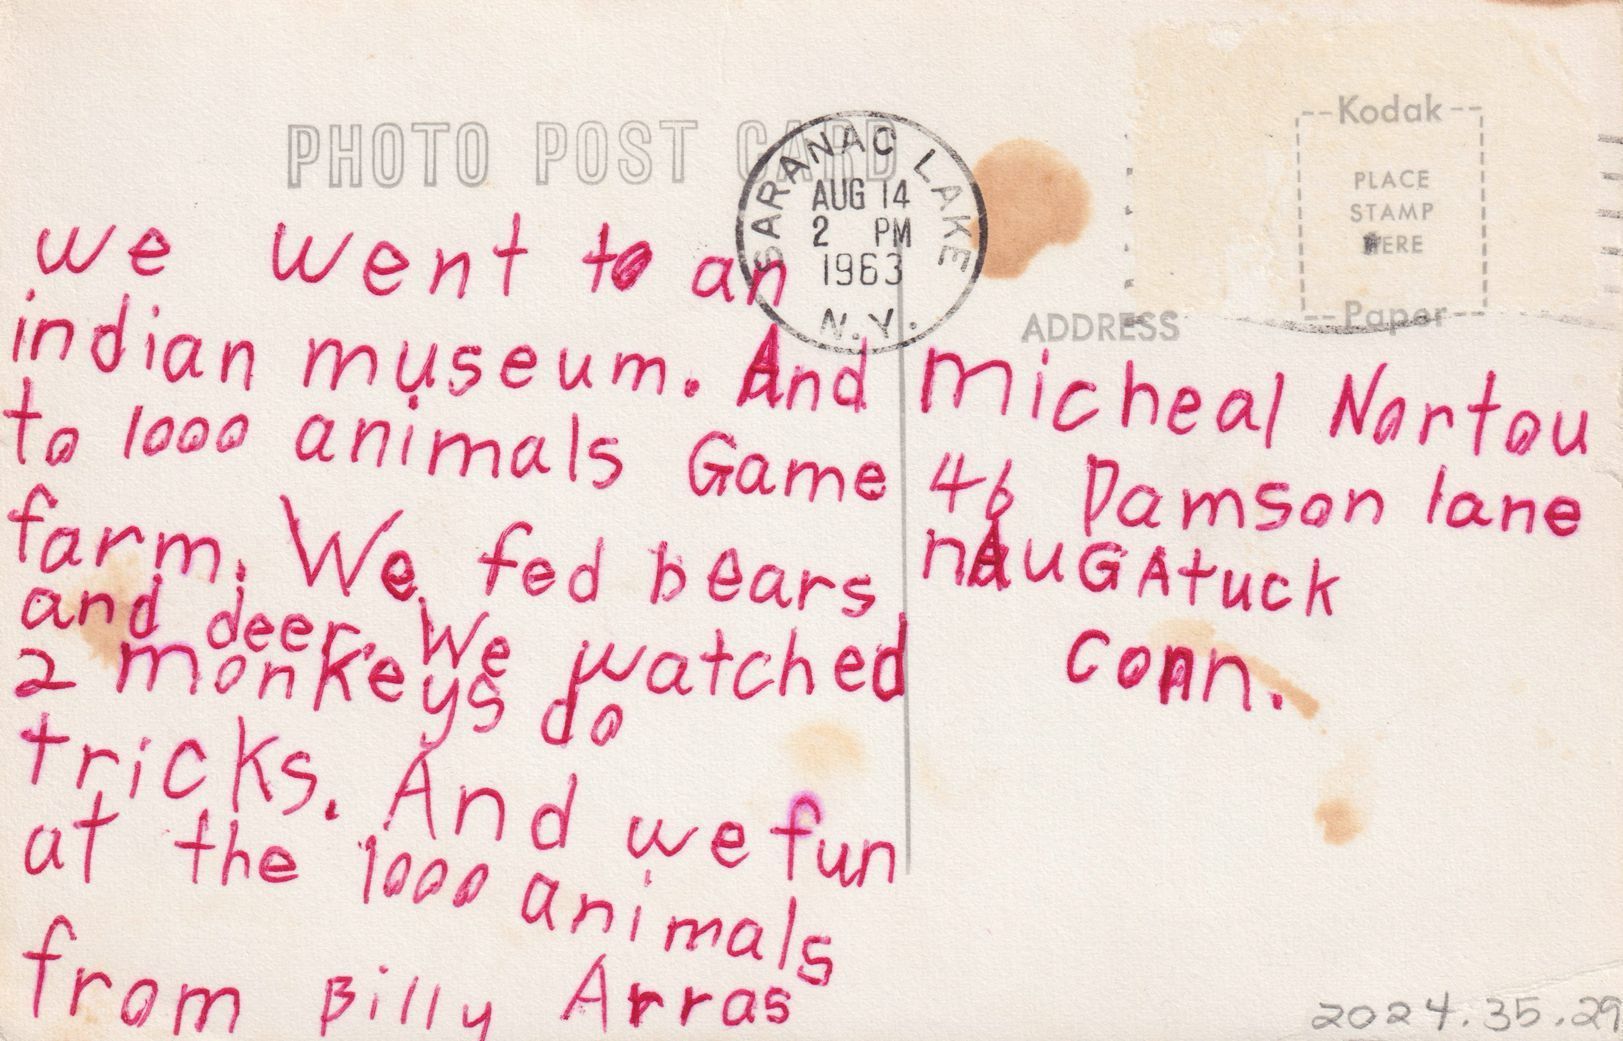 PHOTO POST CARD
SARANAC LAKE
AUG 14
2 PM
1963
N.Y.
--Kodak--
PLACE
STAMP
HERE
--Paper--
ADDRESS
we went to an
indian museum. And
to 1000 animals Game
farm. We fed bears
and deer. We watched
2 monkeys do
tricks. And we fun
at the 1000 animals
from Billy Arras
Micheal Nortou
46 Damson lane
nAuGAtuck
Conn.
2024.35.29